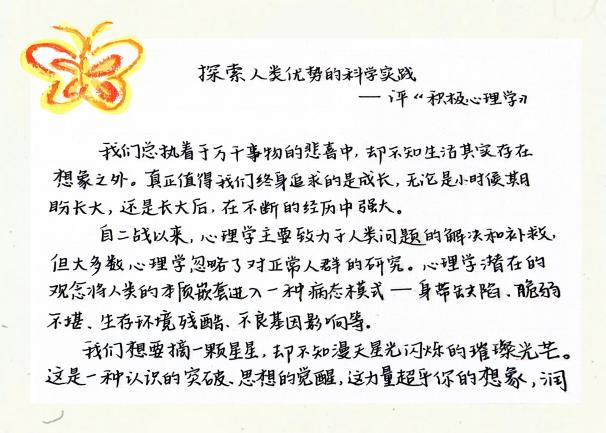 探索人类优势的科学实践
——评“积极心理学》
我们总执着于万千事物的悲喜中，却不知生活其实存在
想象之外。真正值得我们终身追求的是成长，无论是小时候期
盼长大，还是长大后，在不断的经历中强大。
自二战以来，心理学主要致力于人类问题的解决和补救，
但大多数心理学忽略了对正常人群的研究。心理学潜在的
观念将人类的本质嵌套进入一种病态模式——身带缺陷、脆弱
不堪、生存环境残酷、不良基因影响等。
我们想要摘一颗星星，却不知漫天星光闪烁的璀璨光芒。
这是一种认识的突破、思想的觉醒，这力量超乎你的想象，润